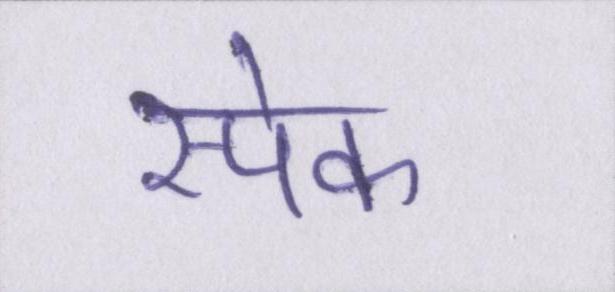 स्पेक